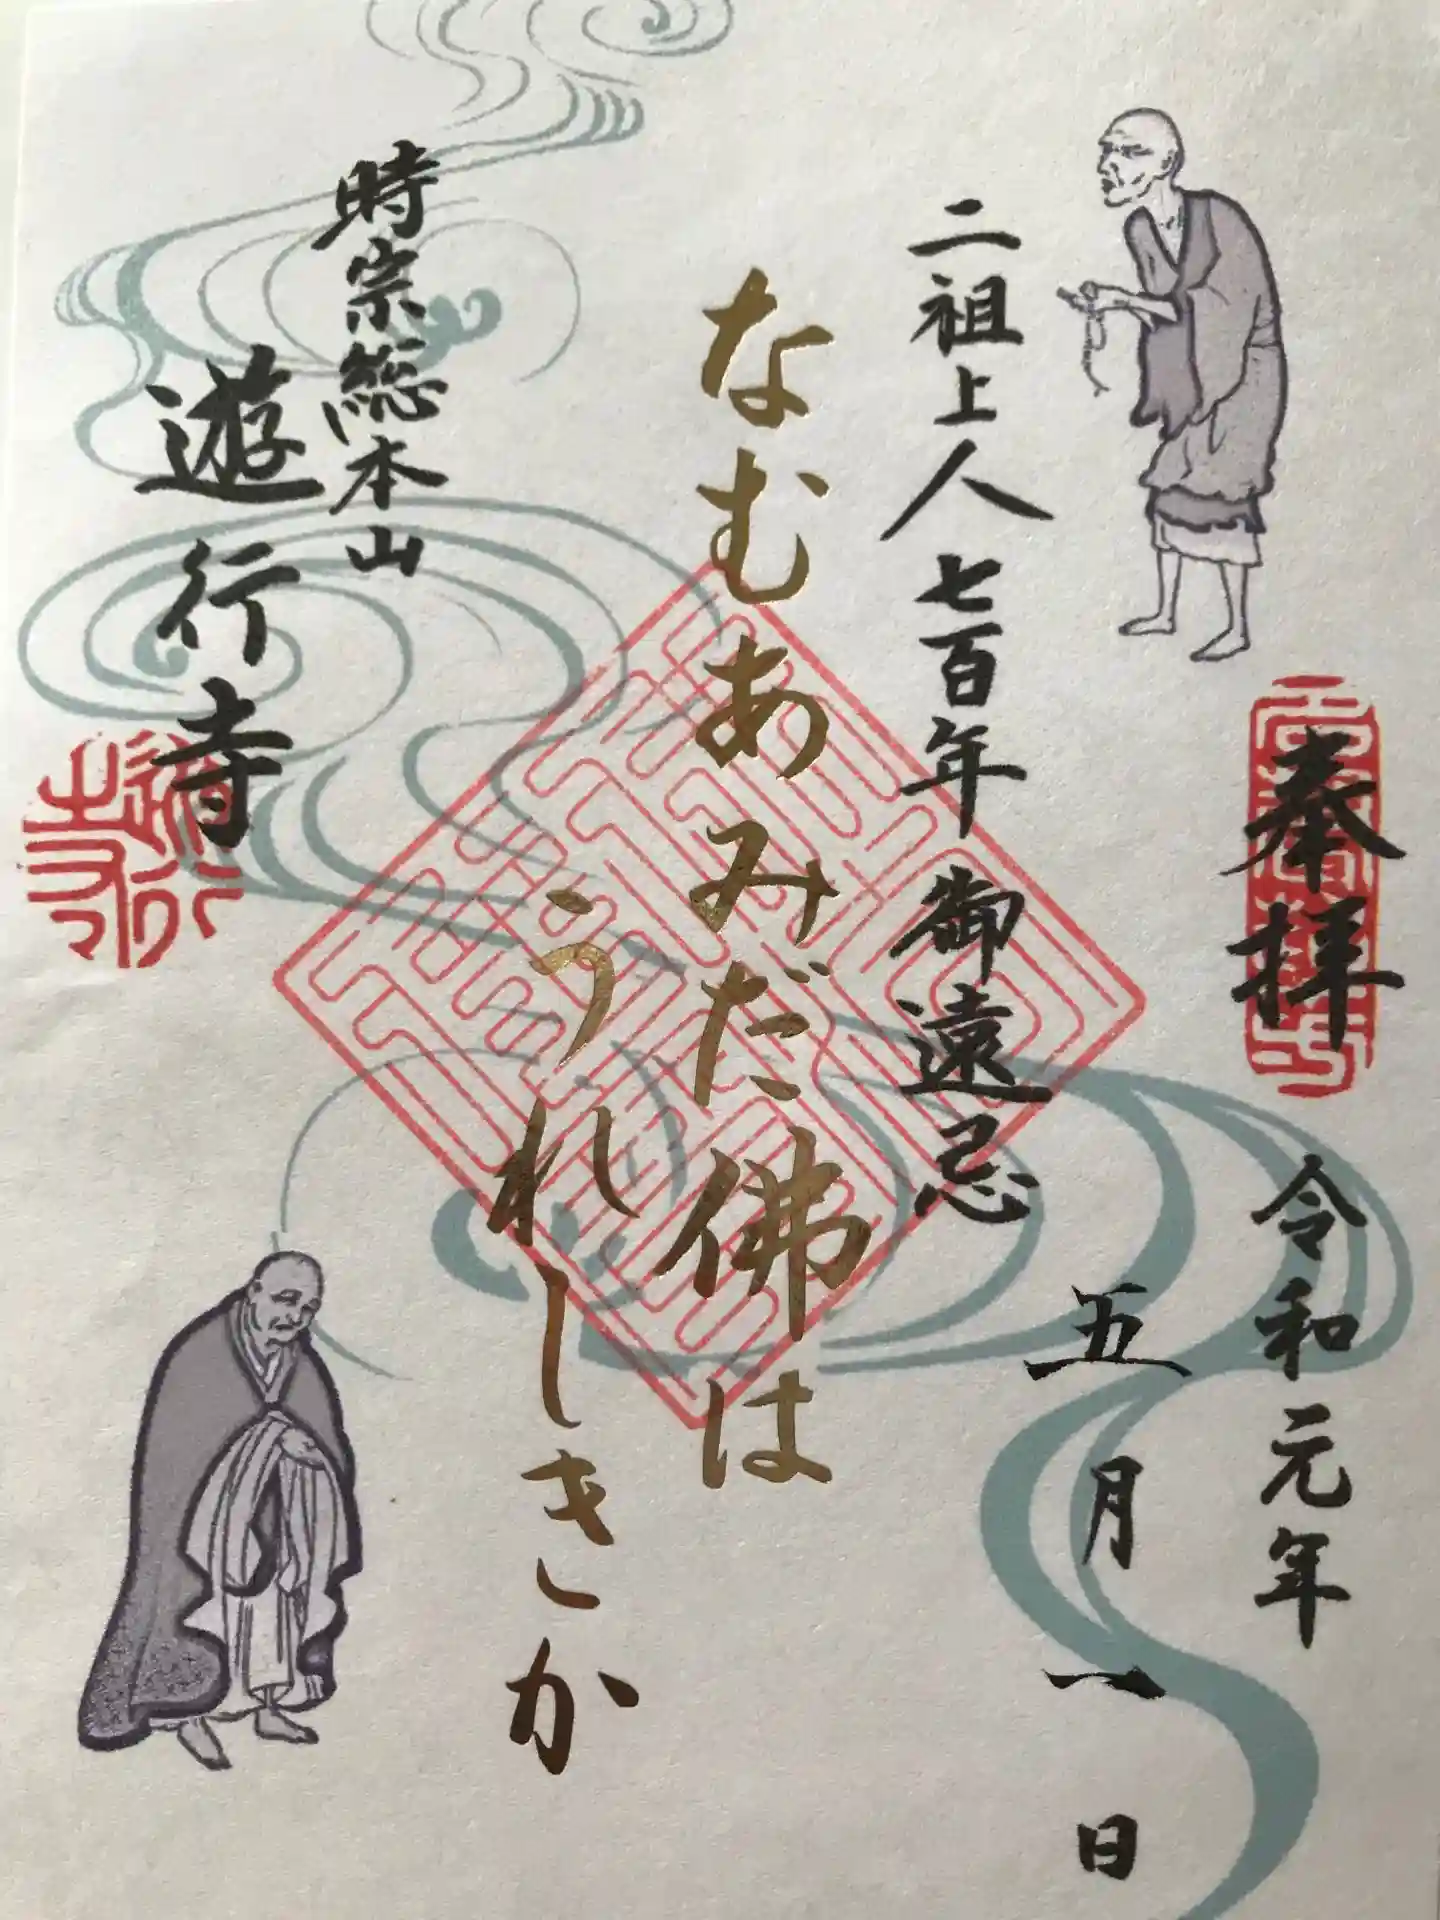 奉拝
令和元年
五月一日
二祖上人七百年御遠忌
なむあみだ佛は
うれしきか
時宗総本山
遊行寺